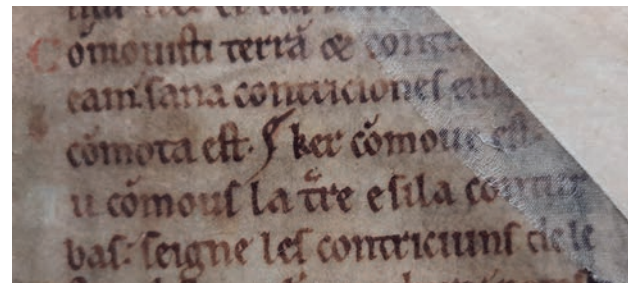 Comouisti terrā & contur
eam. sana contriciones eiu
cōmota est. ker cōmoue est
u cōmous la t̄re e si la contur
bas: seigne les contriciuns de le